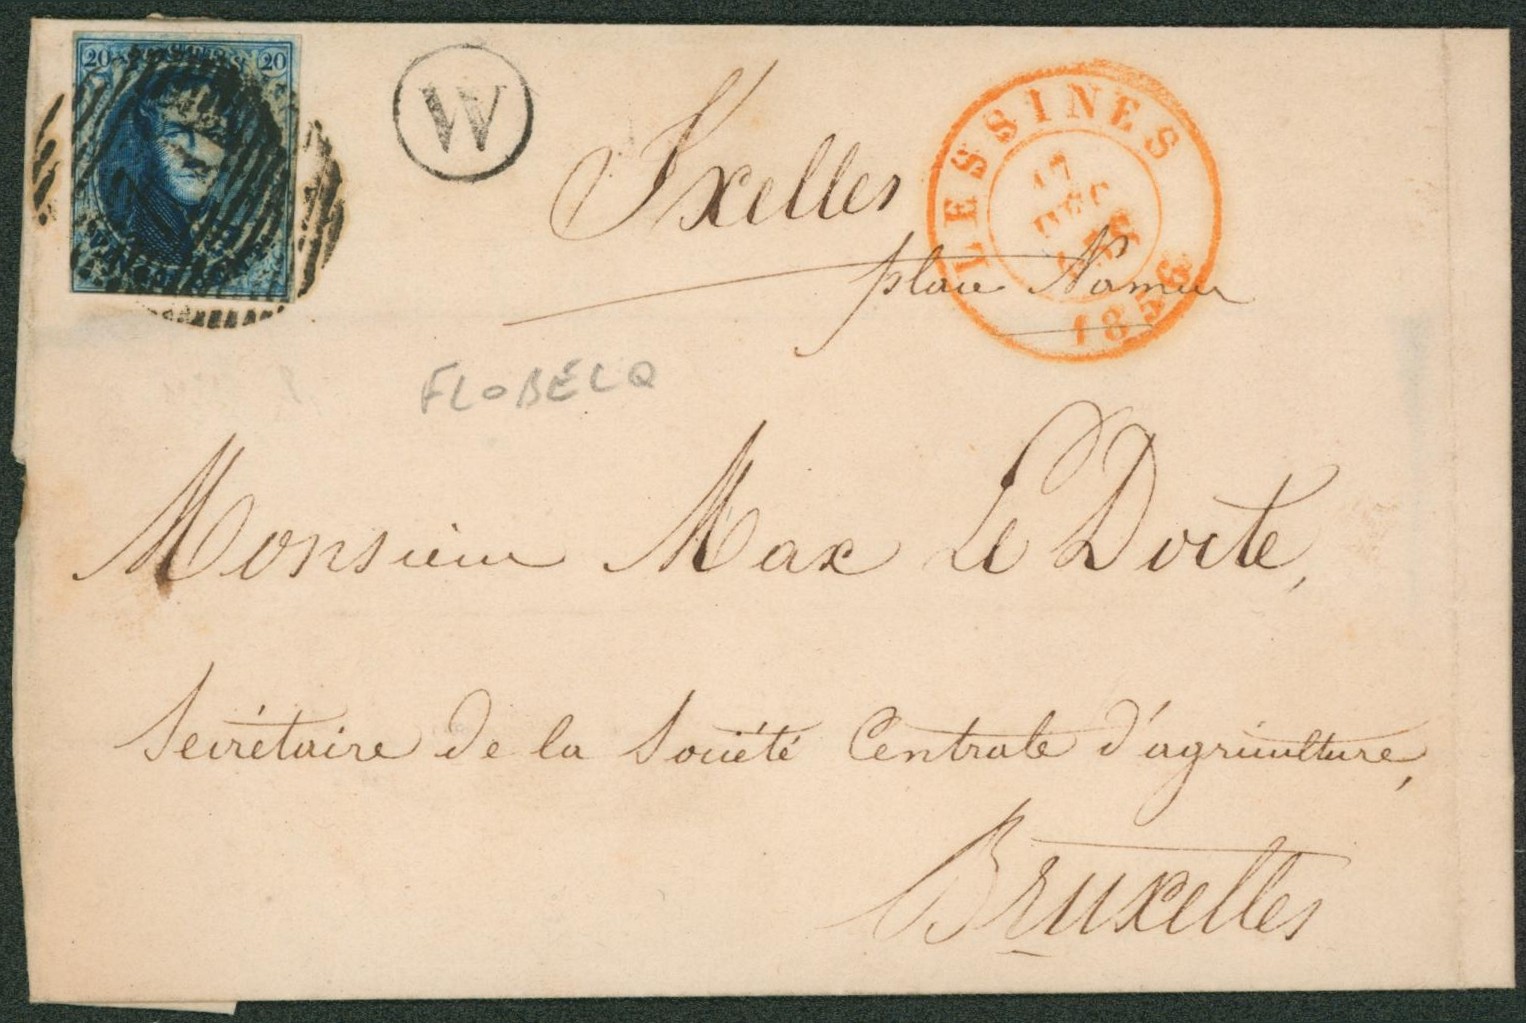 20 20
W
Ixelles
place Namur
LESSINES
17
DEC
1856
FLOBECQ
Monsieur Max Le Docte,
Secrétaire de la Société Centrale d'agriculture,
Bruxelles